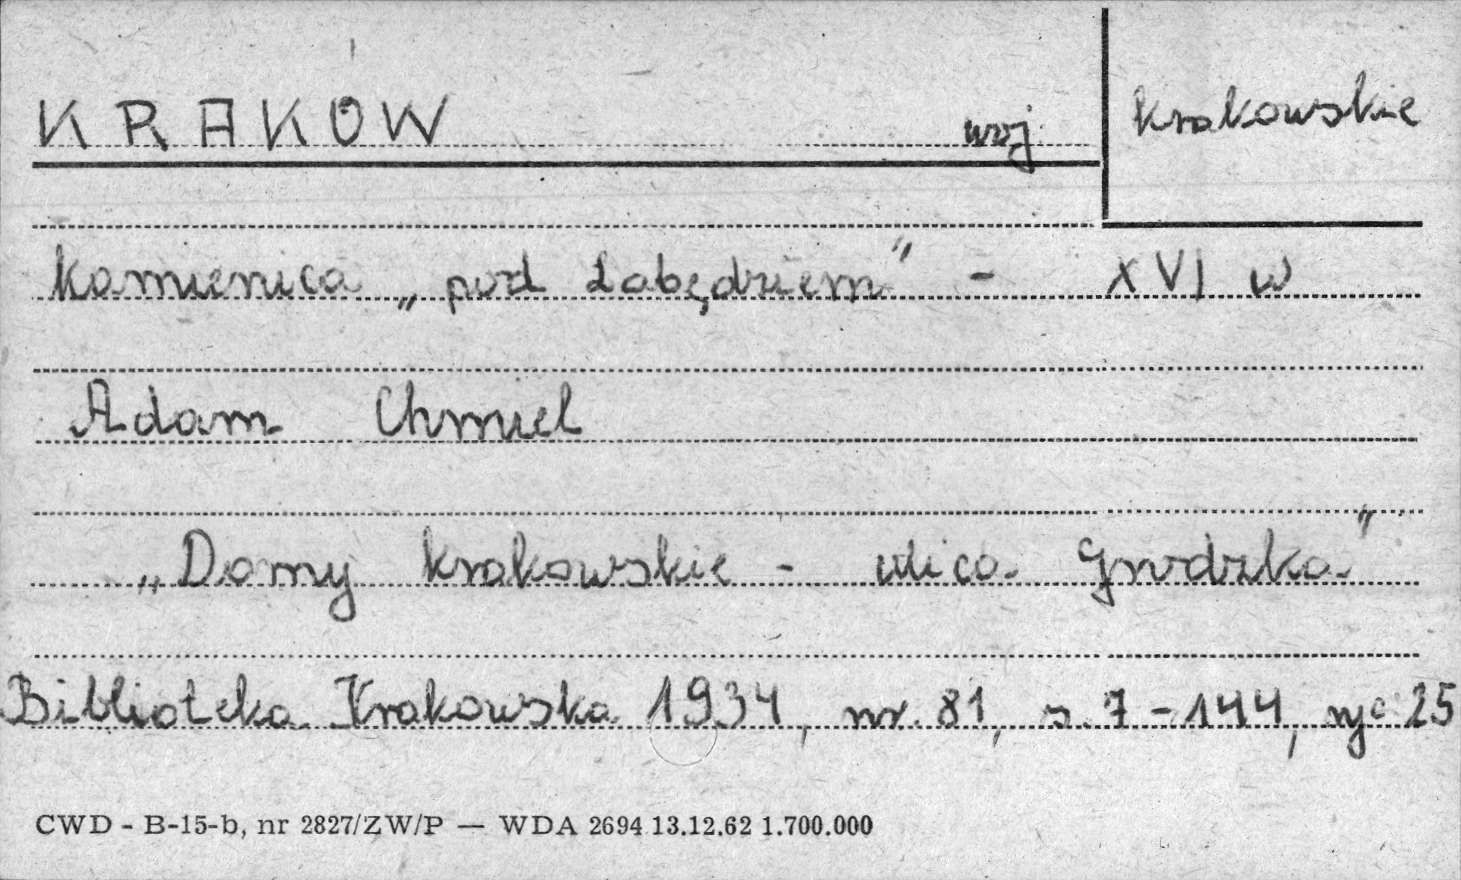 KRAKÓW woj. krakowskie
Kamienica „pod Łabędziem" - XVI w
Adam Chmiel
„Domy krakowskie - ulica Grodzka"
Biblioteka Krakowska 1934, nr. 81, s. 7-144, ryc 25
CWD - B-15-b, nr 2827/ZW/P — WDA 2694 13.12.62 1.700.000